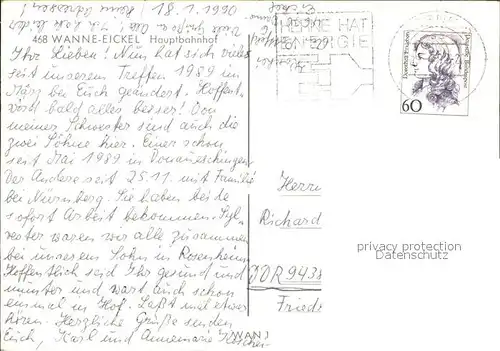 18.1.1990
468 WANNE-EICKEL Hauptbahnhof
Ihr Lieben! Nun hat sich vieles
seit unserem Treffen 1989 im
März bei Euch geändert. Hoffent-
wird bald alles besser! Von
meiner Schwester sind auch die
zwei Söhne hier. Einer schon
seit Mai 1989 in Donaueschingen
Der Andere seit 25.11. mit Familie
bei Nürnberg. Sie haben beide
sofort Arbeit bekommen. Syl-
vester waren wir alle zusammen
bei unserem Sohn in Rosenheim
Hoffentlich seid Ihr gesund und
munter und wart auch schon
einmal in Hof. Laßt mal etwas
hören. Herzliche Grüße senden
Euch, Karl und Annemarie
HERNE HAT
ENERGIE
Deutsche Bundespost
60
Herrn
Richard
DDR 943
Fried
(WAN)
privacy protection
Datenschutz